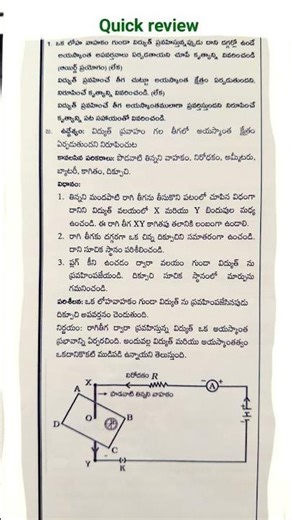 Quick review
1. ఒక లోహ వాహకం గుండా విద్యుత్ ప్రవహిస్తున్నప్పుడు దాని దగ్గర్లో ఉండే
అయస్కాంత అపవర్తనాలు ఏర్పడతాయని చూపే కృత్యాన్ని వివరించండి
(లేక)
విద్యుత్ ప్రవహించే తీగ చుట్టూ అయస్కాంత క్షేత్రం ఏర్పడుతుందని,
నిరూపించే కృత్యాన్ని వివరించండి. (లేక)
విద్యుత్ ప్రవహించే తీగ అయస్కాంతములాగా ప్రవర్తిస్తుందని నిరూపించే
కృత్యాన్ని పట సహాయంతో వివరించండి.
జ. ఉద్దేశ్యం: విద్యుత్ ప్రవాహం గల తీగలో అయస్కాంత క్షేత్రం
ఏర్పడుతుందని నిరూపించుట
కావలసిన పరికరాలు: పొడవాటి తిన్నని వాహకం, నిరోధకం, అమ్మీటరు,
బ్యాటరీ, కాగితం, దిక్సూచి.
విధానం:
1. తిన్నని మందపాటి రాగి తీగను తీసుకొని పటంలో చూపిన విధంగా
దానిని విద్యుత్ వలయంలో X మరియు Y బిందువుల మధ్య
ఉంచండి. ఈ రాగి తీగ XY కాగితపు తలానికి లంబంగా ఉండాలి.
2. రాగి తీగకు దగ్గరగా ఒక చిన్న దిక్సూచిని సమాతరంగా ఉంచండి.
దాని సూచిక స్థానం పరిశీలించండి.
3. ప్లగ్ కీని ఉంచడం ద్వారా వలయం గుండా విద్యుత్ ను
ప్రవహింపజేయండి. దిక్సూచి సూచిక స్థానంలో మార్పును
గమనించండి.
పరిశీలన: ఒక లోహవాహకం గుండా విద్యుత్ ను ప్రవహింపజేసినపుడు
దిక్సూచి అపవర్తనం చెందుతుంది.
నిర్ణయం: రాగితీగ ద్వారా ప్రవహిస్తున్న విద్యుత్ ఒక అయస్కాంత
ప్రభావాన్ని ఏర్పరచింది. అందువల్ల విద్యుత్ మరియు అయస్కాంతత్వం
ఒకదానికొకటి ముడిపడి ఉన్నాయని తెలుస్తుంది.
నిరోధకం R
X
A
పొడవాటి తిన్నని వాహకం
A
O
B
D
C
Y
K